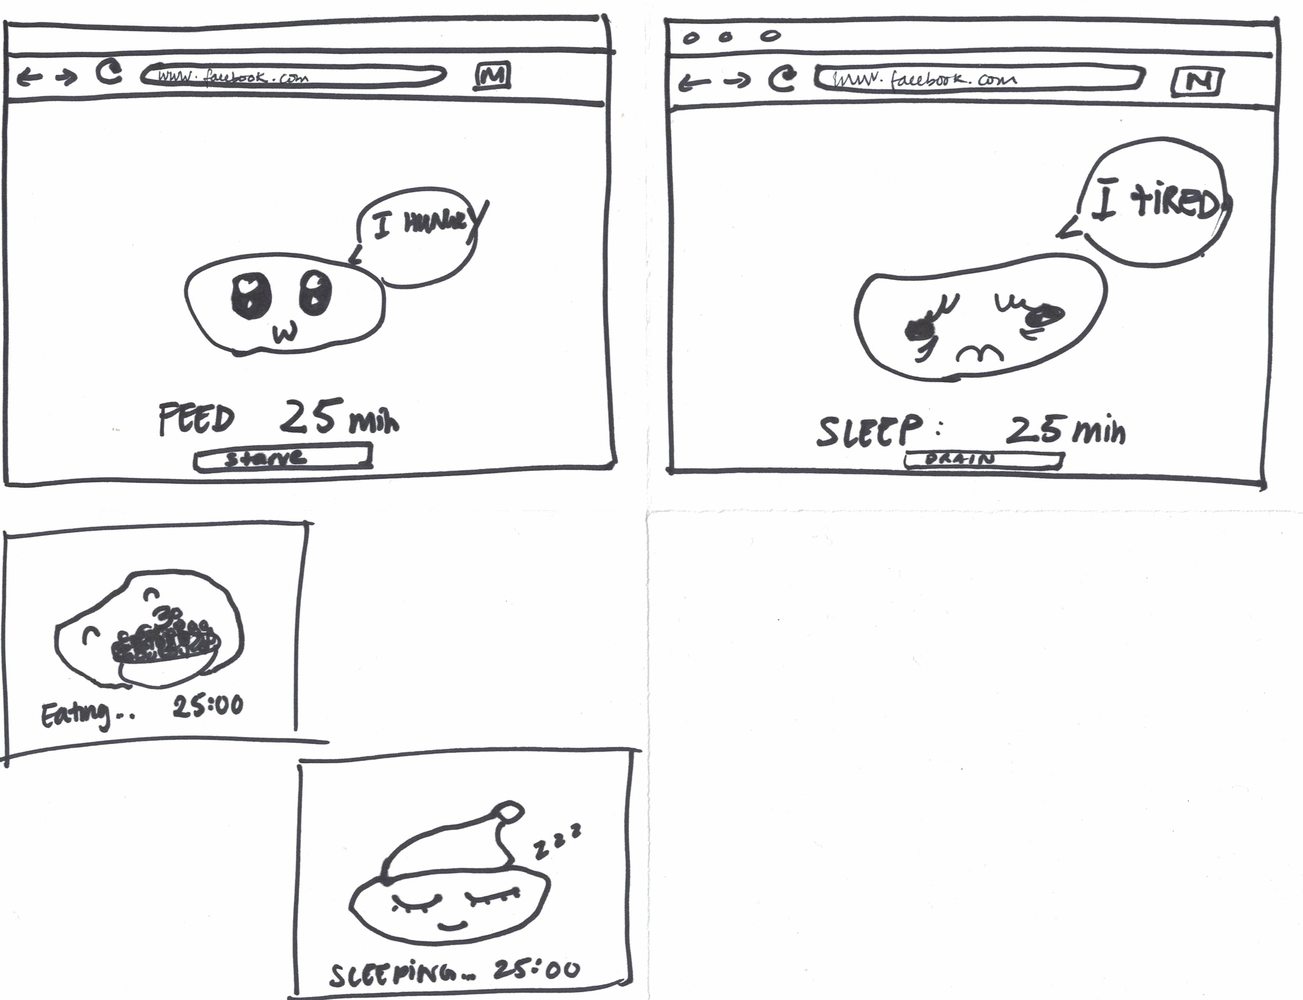 www.facebook.com
M
I HUNGRY
FEED 25 min
starve
www.facebook.com
N
I tiRED
SLEEP: 25 min
DRAIN
Eating.. 25:00
z z z
SLEEPiNG... 25:00